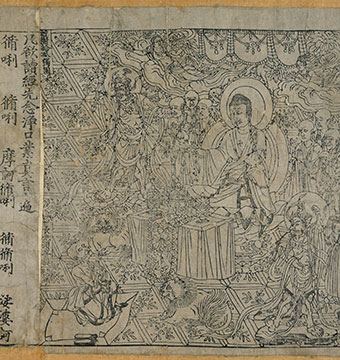 凡欲讀經先念淨口業真言一遍
脩唎　脩唎　摩訶脩唎　脩脩唎　娑婆訶